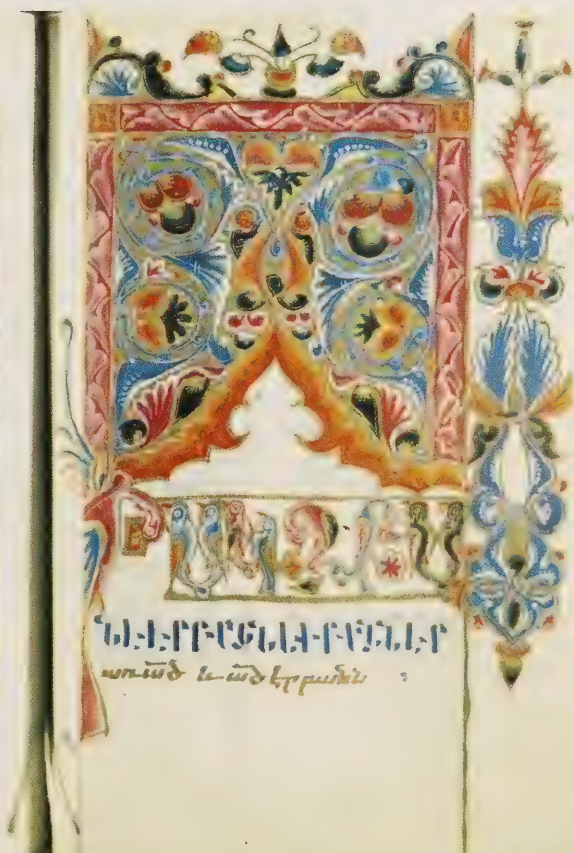 ԻՍԿԶԲԱ
ՆԷԷՐԲԱՆՆԵՒԲԱՆՆԷՐ
առ ած և ած էր բանն :